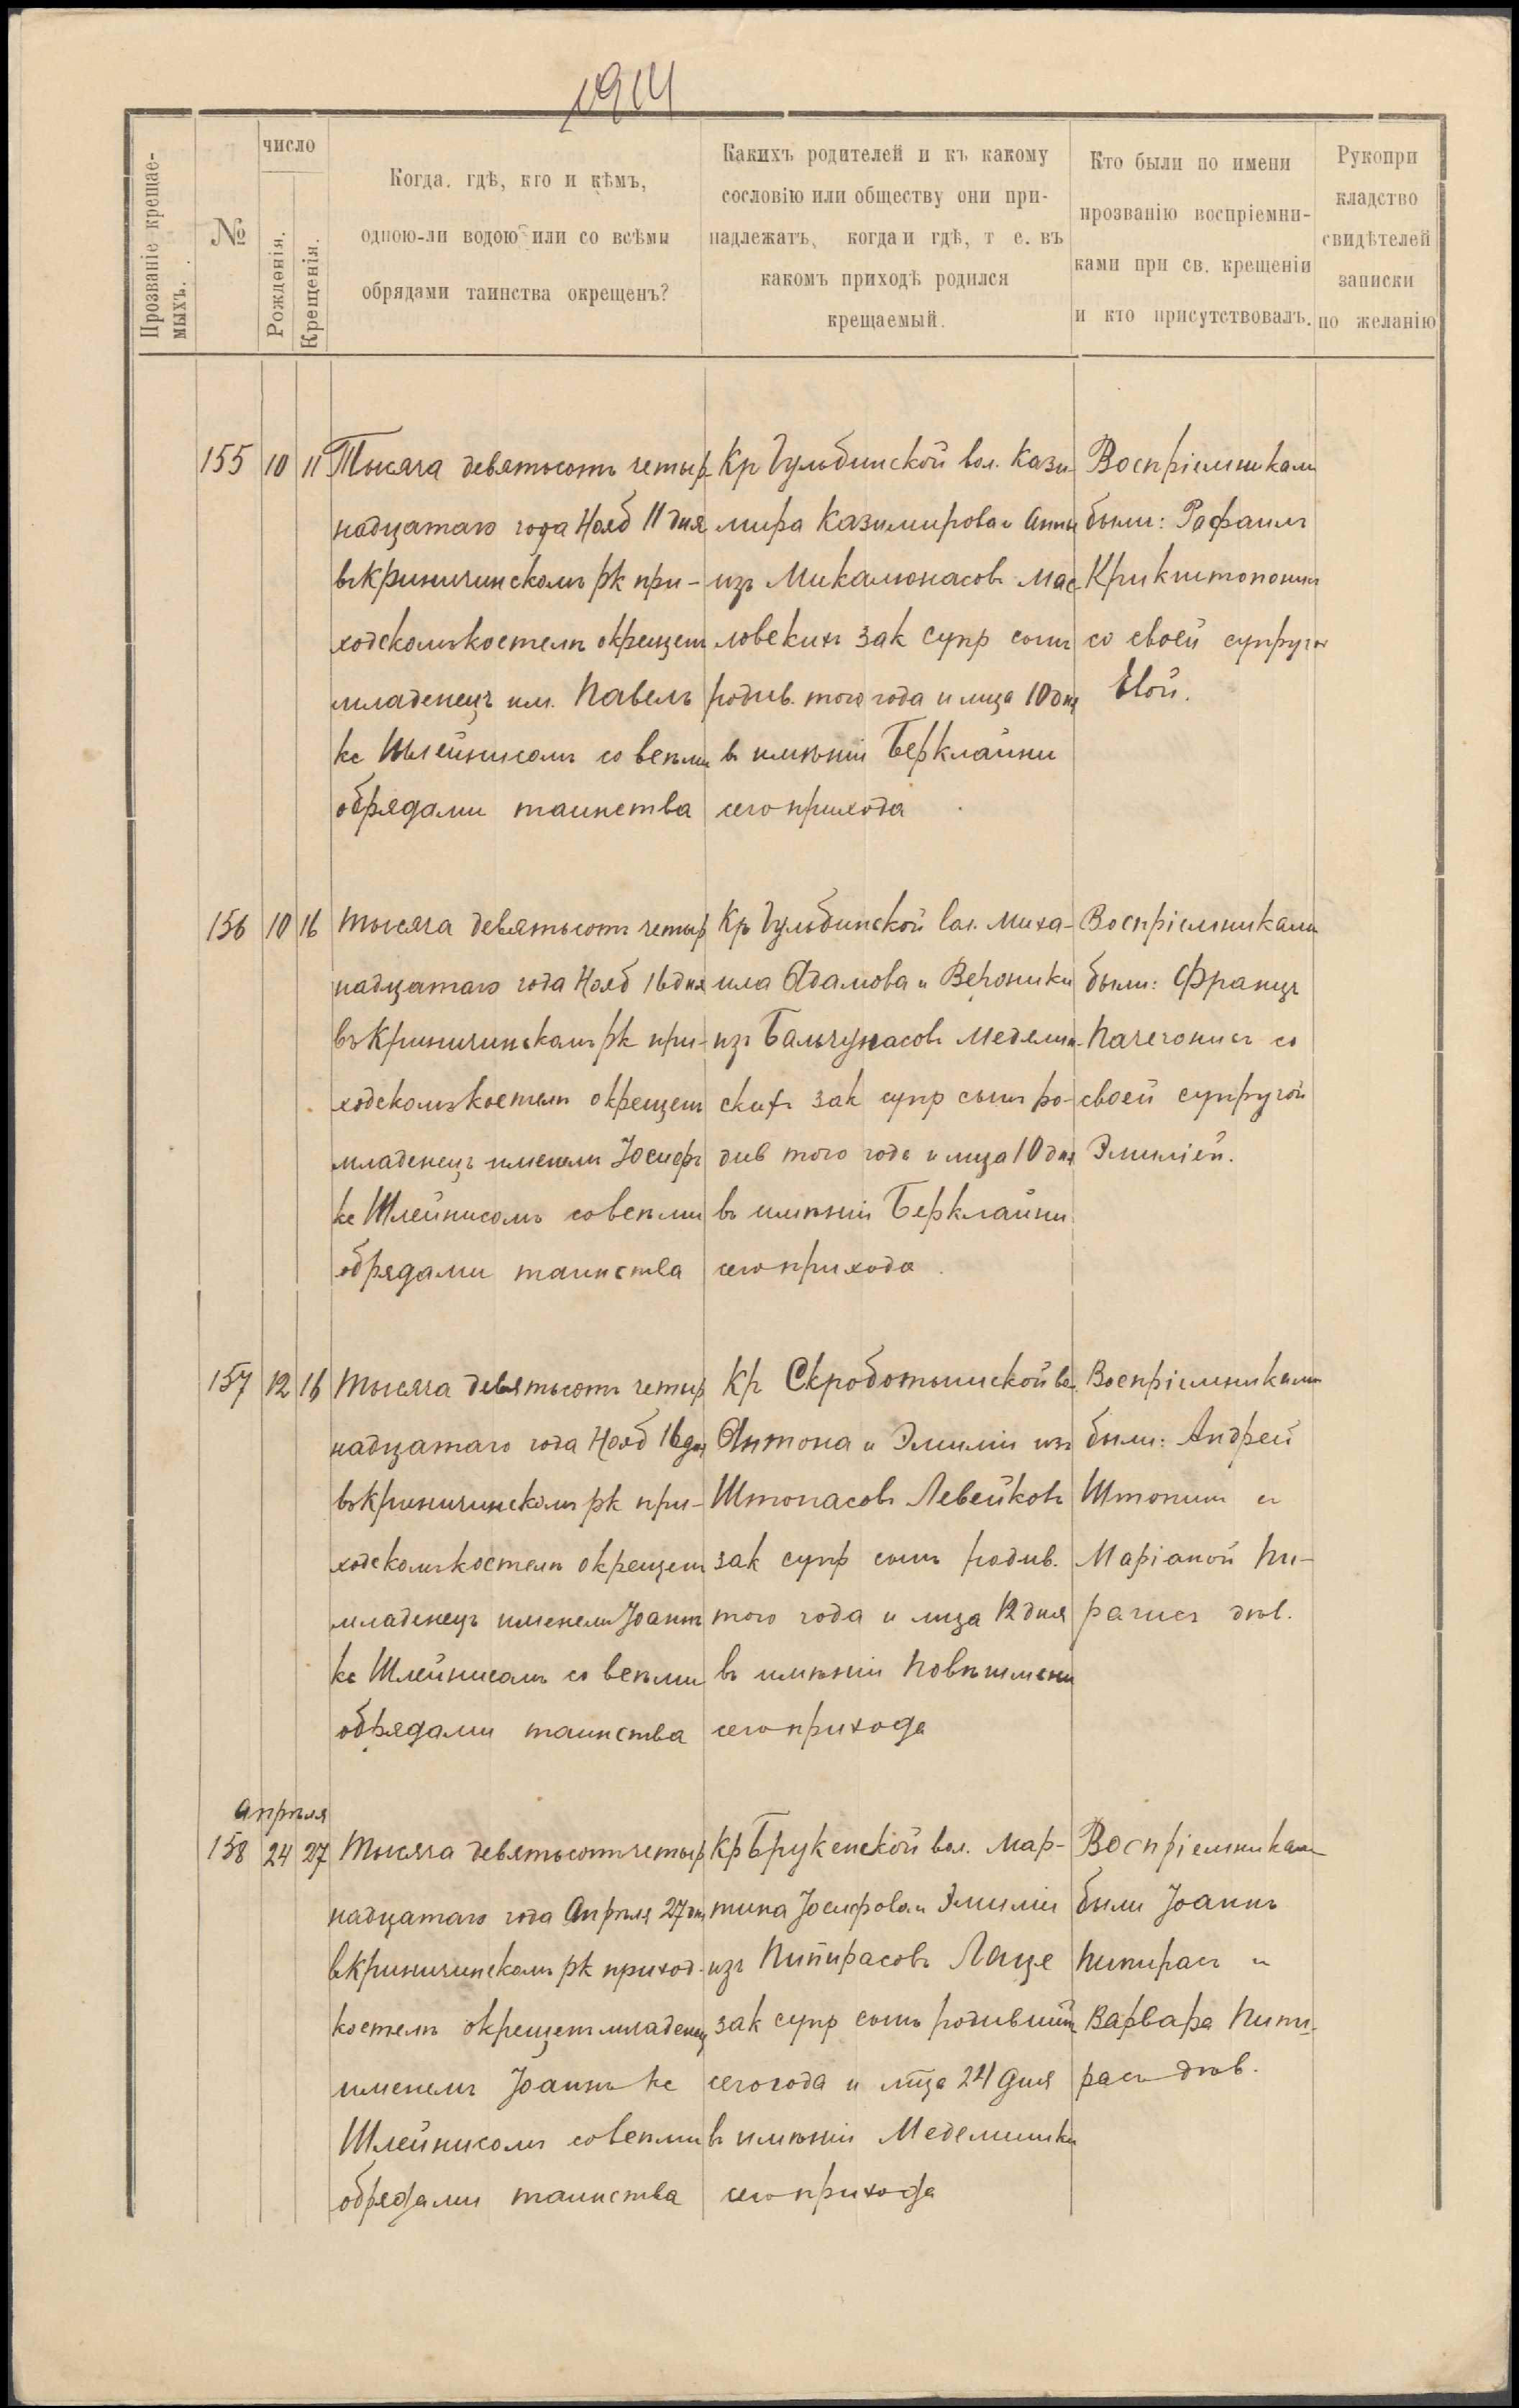 1914
Прозваніе крещае-
мыхъ.
№
число
Рожденія.
Крещенія.
Когда, гдѣ, кто и кѣмъ,
одною-ли водою или со всѣми
обрядами таинства окрещенъ?
Каихъ родителей и къ какому
сословію или обществу они при-
надлежатъ, когда и гдѣ, т е. въ
какомъ приходѣ родился
крещаемый.
Кто были по имени
прозванію воспріемни-
ками при св. крещеніи
и кто присутствовалъ.
Рукопри
кладство
свидѣтелей
записки
по желанію
155 10 11
Тысяча девятьсотъ четыр
надцатаго года Нояб 11 дня
въ Криничинскомъ рк при-
ходскомъ костелѣ окрещенъ
младенецъ им. Павелъ
кс Шлейнисомъ со всѣми
обрядами таинства
Кр Гульбинской вол. Кази
мира Казимирова и Анны
изъ Микалюнасовъ Мас
ловскихъ зак супр сынъ
родив. того года и мца 10 дня
въ имѣніи Берклайни
сего прихода
Воспріемниками
были: Рафаилъ
Крикштопонисъ
со своей супругой
Евой.
156 10 16
Тысяча девятьсотъ четыр
надцатаго года Нояб 16 дня
въ Криничинскомъ рк при-
ходскомъ костелѣ окрещенъ
младенецъ именемъ Іосифъ
кс Шлейнисомъ со всѣми
обрядами таинства
Кр Гульбинской вол. Миха-
ила Адамова и Вероники
изъ Бальчунасовъ Меделин
скихъ зак супр сынъ ро-
див того года и мца 10 дня
въ имѣніи Берклайни
сего прихода.
Воспріемниками
были: Францъ
со
своей супругой
Эмиліей.
157 12 16
Тысяча девятьсотъ четыр
надцатаго года Нояб 16 дня
въ Криничинскомъ рк при-
ходскомъ костелѣ окрещенъ
младенецъ именемъ Іоаннъ
кс Шлейнисомъ со всѣми
обрядами таинства
Кр Скроботышской во.
Антона и Эмиліи изъ
Штопасовъ Левейковъ
зак супр сынъ родив.
того года и мца 12 дня
въ имѣніи
сего прихода
Воспріемниками
были: Андрей
и
Маріаной Пи-
дѣв.
Апрѣля
158 24 27
Тысяча девятьсотъ четыр
надцатаго года Апрѣля 27 дня
въ Криничинскомъ рк приход.
костелѣ окрещенъ младенец
именемъ Іоаннъ кс
Шлейнисомъ со всѣми
обрядами таинства
Кр Брукенской вол. Мар-
тина Іосифова и Эмиліи
изъ Пипирасовъ Лаце
зак супр сынъ родившій
сего года и мца 24 дня
въ имѣніи Меделишки
сего прихода
Воспріемниками
были Іоаннъ
Пипирасъ и
Варвара Пипи-
расъ дѣв.